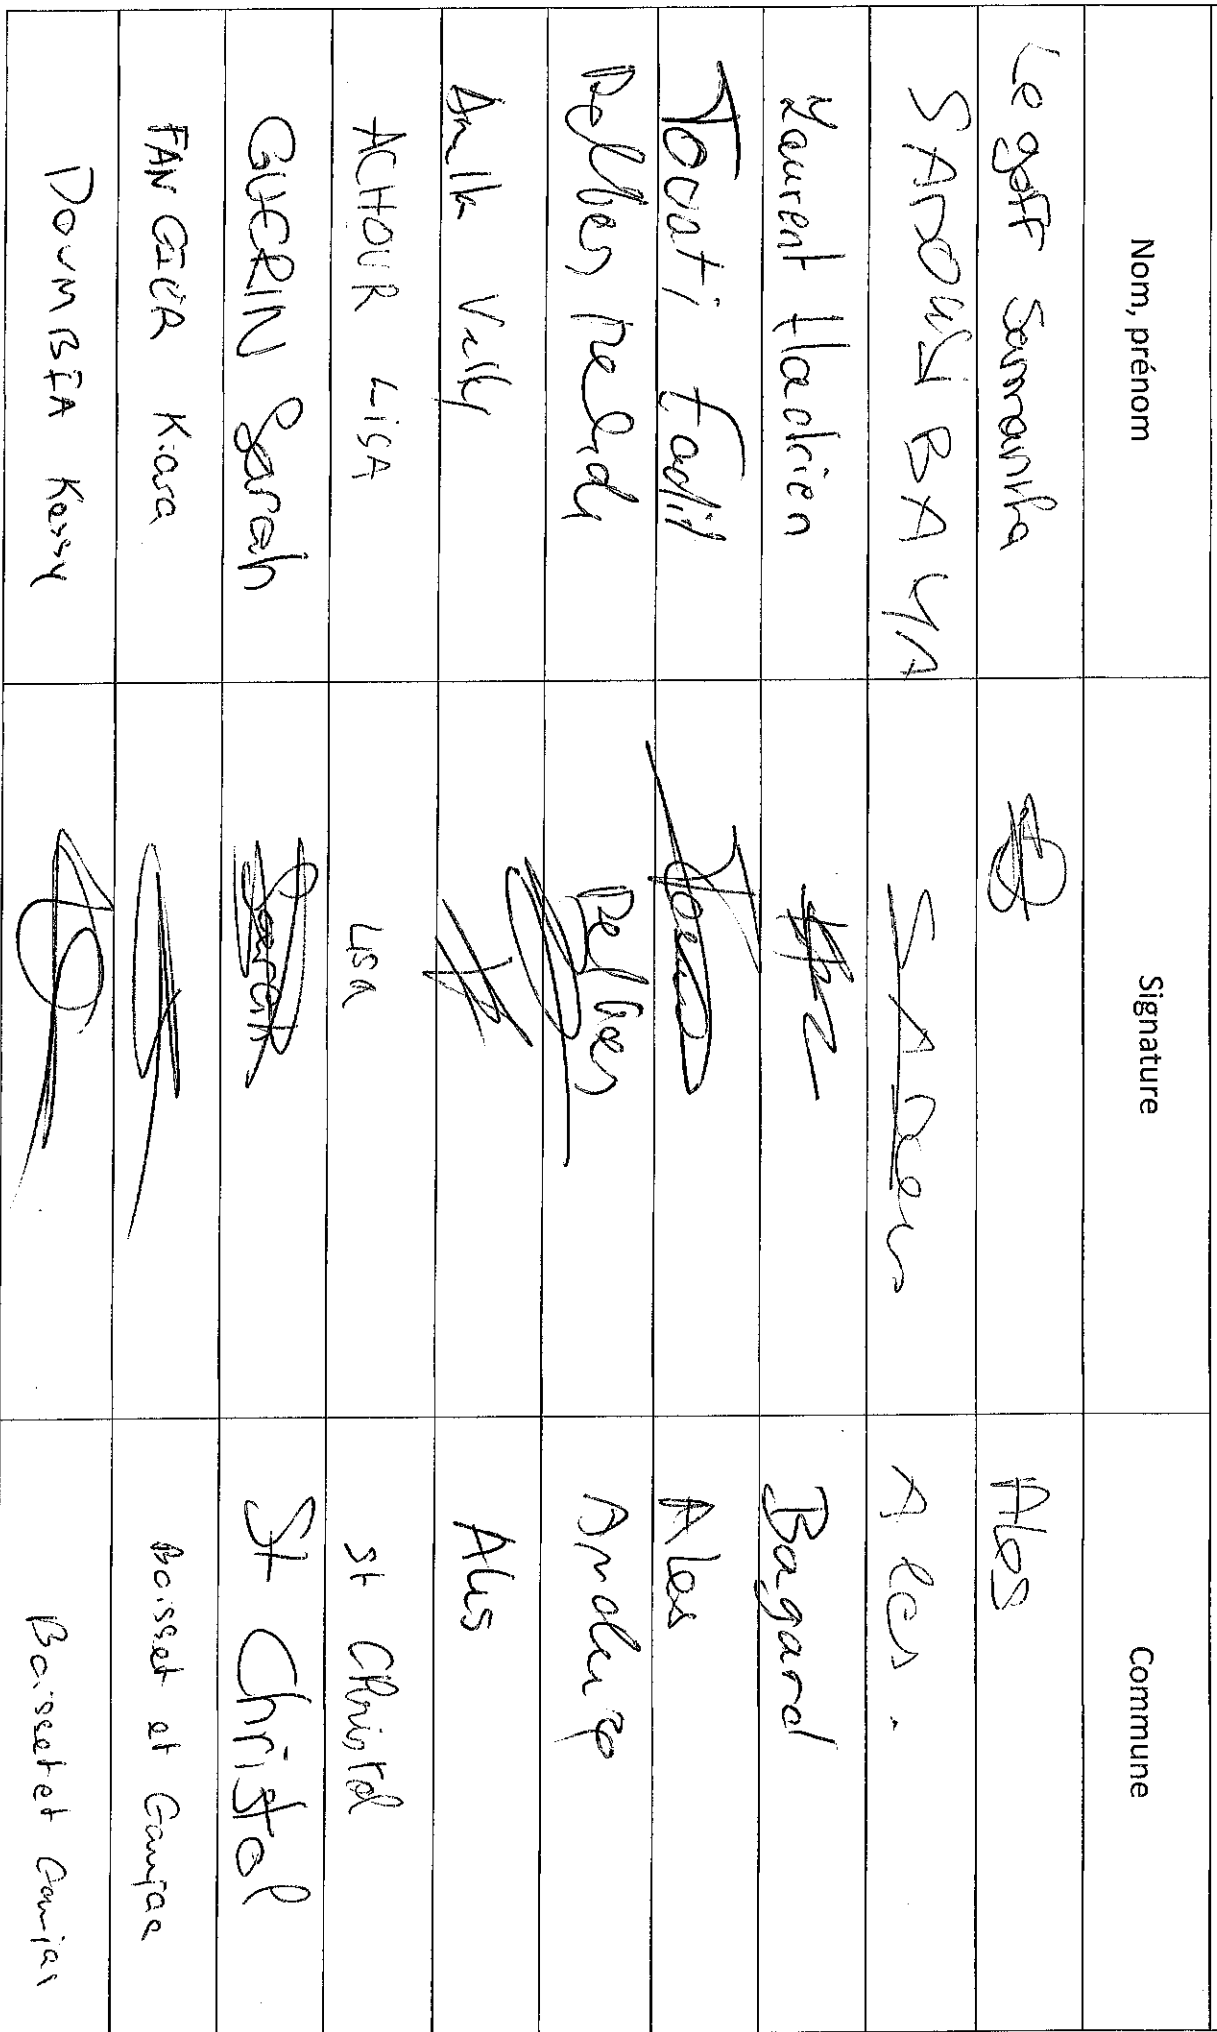 Nom, prénom Signature Commune
Le goff Samantha Ales
SADOUKI BAYA SADou Ales.
Laurent Hadrien Bagard
Touati Fadil Toua Ales
Delbes Delbes Anduze
Ales
ACHOUR LiSA Lisa St Christol
GUERIN Sarah Sarah St Christol
Kiara Boisset et Gaujac
DOUMBIA Boisset et Gaujac